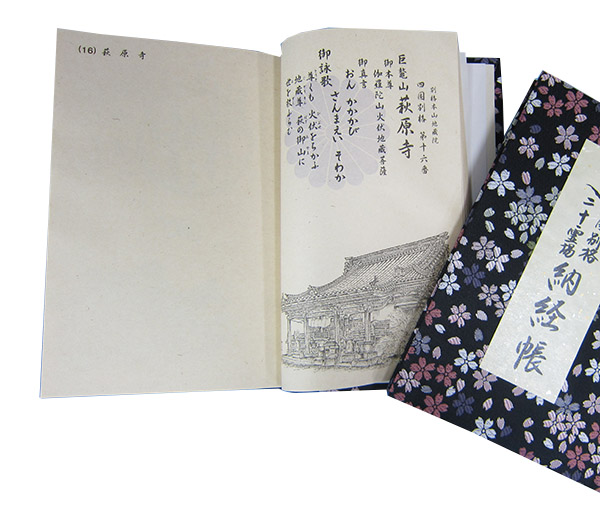 (16) 萩原寺
別格本山地蔵院
四国別格 第十六番
巨鼇山 萩原寺
御本尊
伽羅陀山火伏地蔵菩薩
御真言
おん かかかび
さんまえい そわか
御詠歌
尊くも 火伏をちかふ
地蔵尊 萩の御山に
別格
二十霊場
納経帳